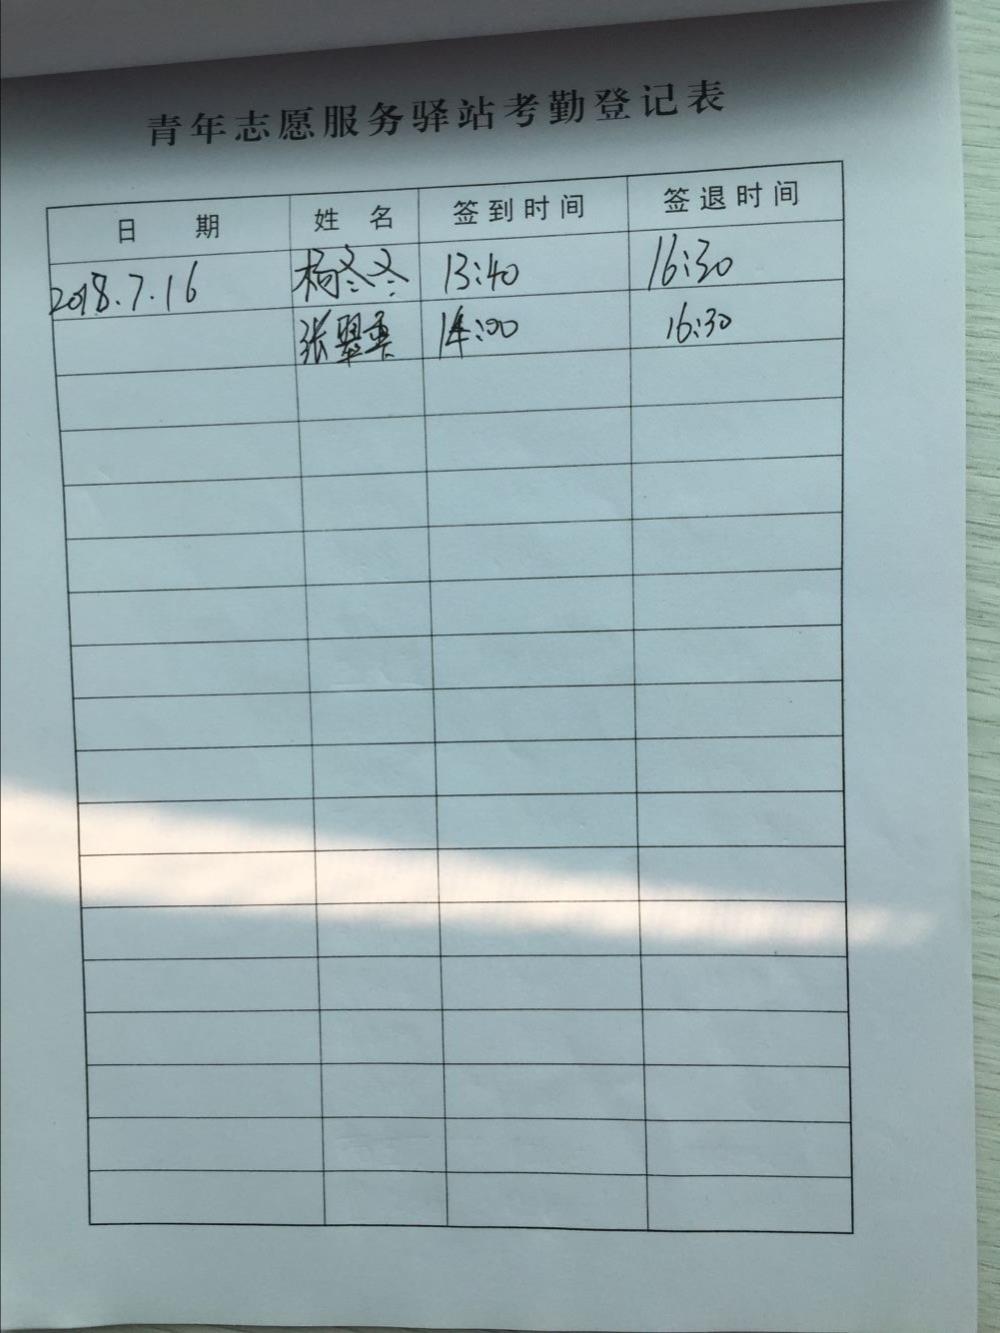 青年志愿服务驿站考勤登记表
日 期 姓 名 签到时间 签退时间
2018.7.16 杨冬冬 13:40 16:30
张翠 14:00 16:30